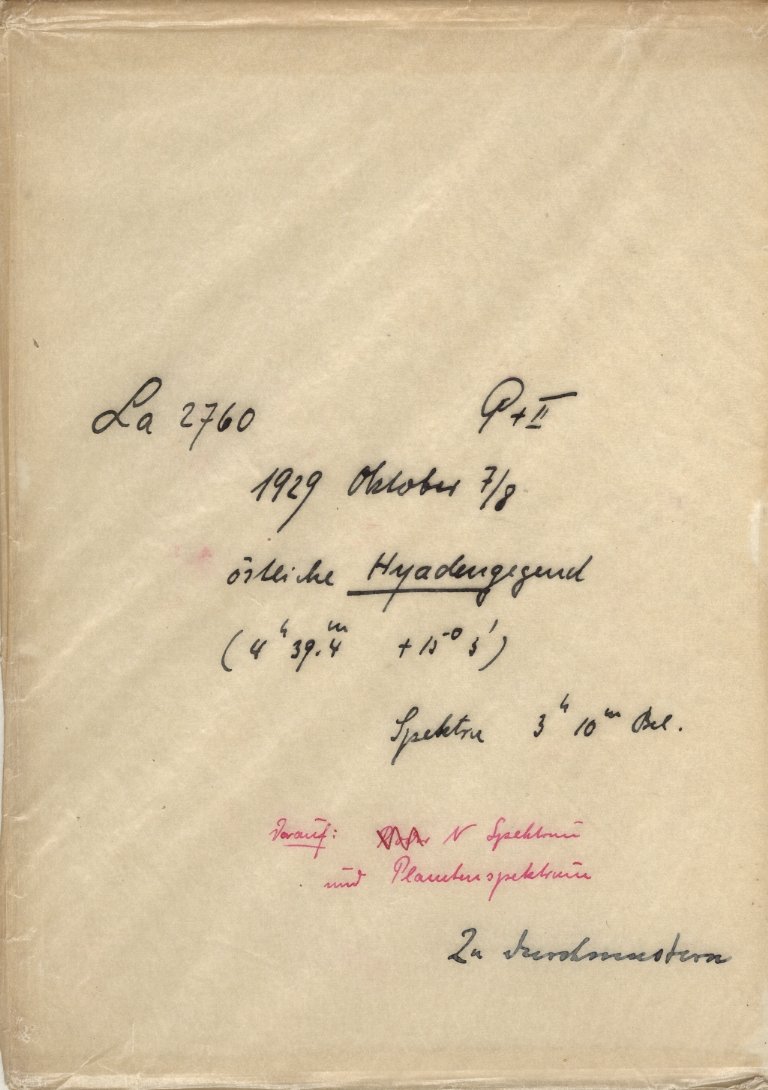 La 2760 P+II
1929 Oktober 7/8
östliche Hyadengegend
(4ʰ 39.ᵐ4 +15° 3')
Spektra 3ʰ 10ᵐ Bel.
Darauf: N Spektrum
und Planetenspektrum
Zu durchmustern